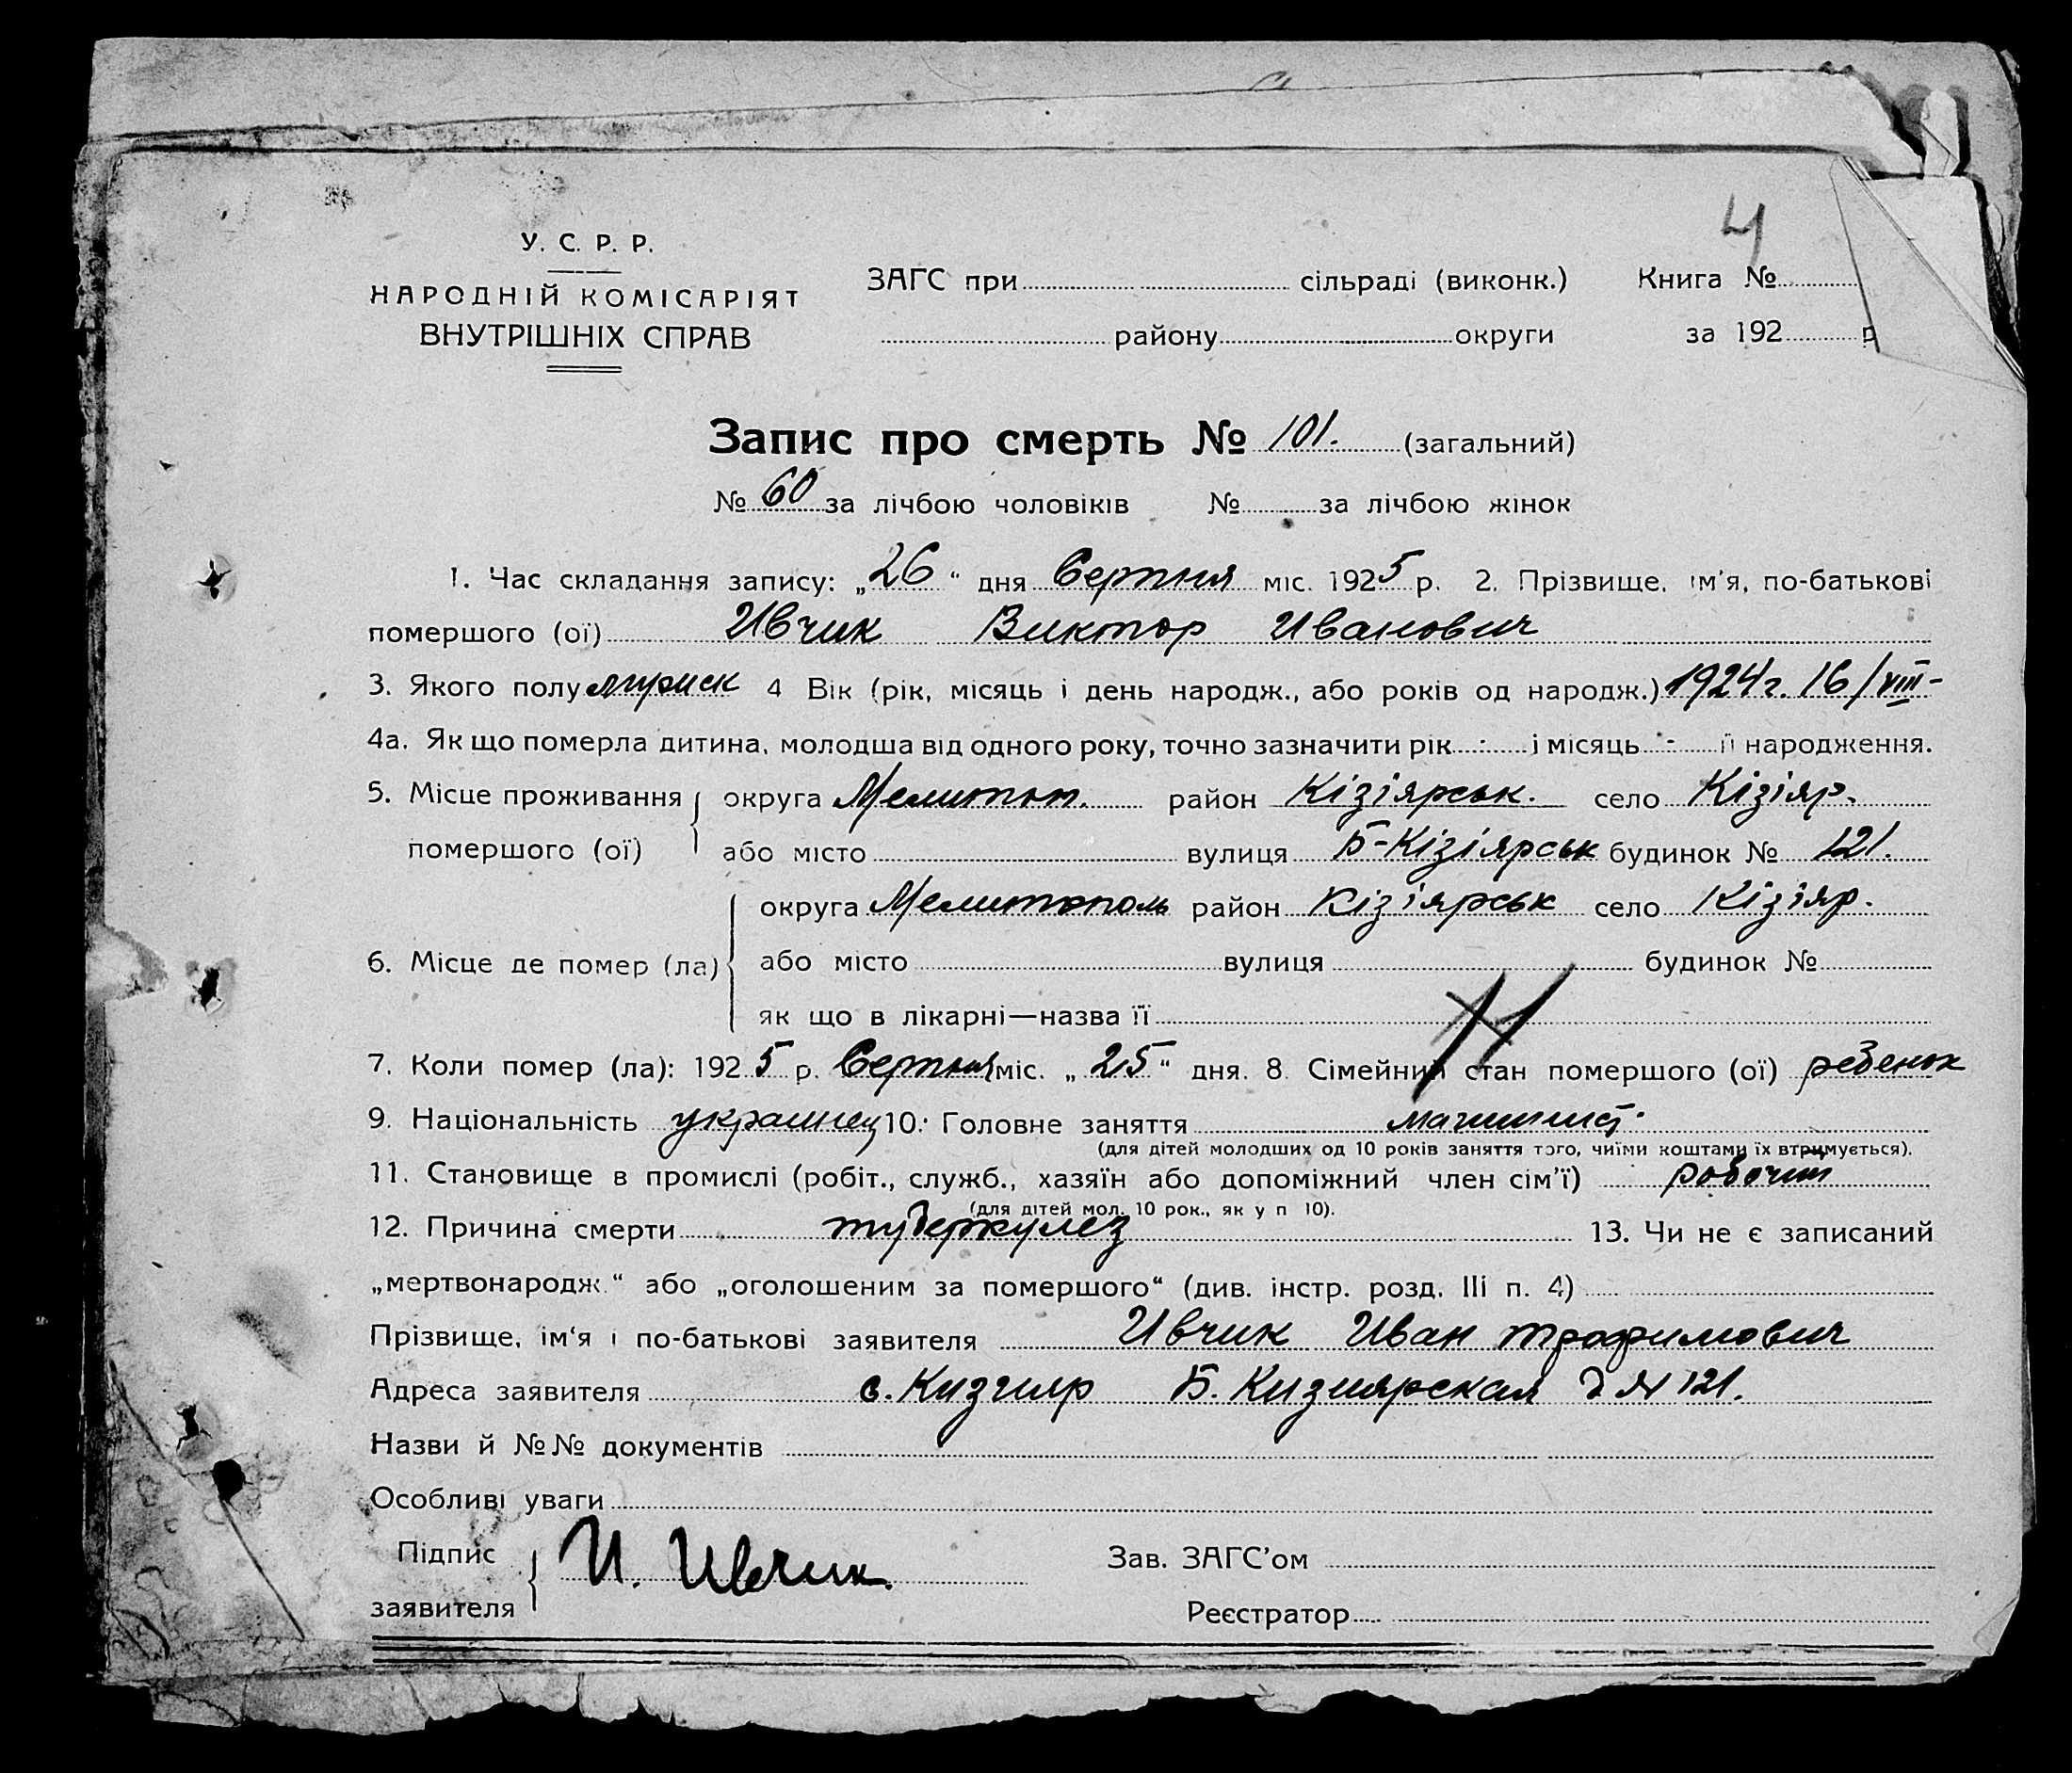 4
У. С. Р. Р.
НАРОДНІЙ КОМІСАРІЯТ
ВНУТРІШНІХ СПРАВ
ЗАГС при сільраді (виконк.)
району округи
Книга №
за 192 р
Запис про смерть № 101. (загальний)
№ 60 за лічбою чоловіків № за лічбою жінок
1. Час складання запису: „26“ дня Серпня міс. 1925 р. 2. Прізвище, ім'я, по-батькові
помершого (ої) Ивчик Виктор Иванович
3. Якого полу 4 Вік (рік, місяць і день народж., або років од народж.) 1924 г. 16/VIII-
4а. Як що померла дитина, молодша від одного року, точно зазначити рік - і місяць - її народження.
5. Місце проживання округа Мелитоп. район Кізіярськ. село Кізіяр.
помершого (ої) або місто вулиця Б-Кізіярськ будинок № 121.
округа Мелитополь район Кізіярськ село Кізіяр.
6. Місце де помер (ла) або місто вулиця будинок №
як що в лікарні—назва її
7. Коли помер (ла): 1925 р. Серпня міс. „25“ дня. 8. Сімейний стан помершого (ої) ребенок
9. Національність украинец 10. Головне заняття машинист.
(для дітей молодших од 10 років заняття того, чиїми коштами їх втримується).
11. Становище в промислі (робіт., служб., хазяїн або допоміжний член сім'ї) рабочий
(для дітей мол. 10 рок., як у п 10).
12. Причина смерти туберкулез 13. Чи не є записаний
„мертвонародж.“ або „оголошеним за помершого“ (див. інстр. розд. III п. 4)
Прізвище, ім'я і по-батькові заявителя Ивчик Иван Трофимович
Адреса заявителя с. Кизияр Б. Кизиярская д № 121.
Назви й №№ документів
Особливі уваги
Підпис И. Ивчик. Зав. ЗАГС'ом
заявителя Реєстратор